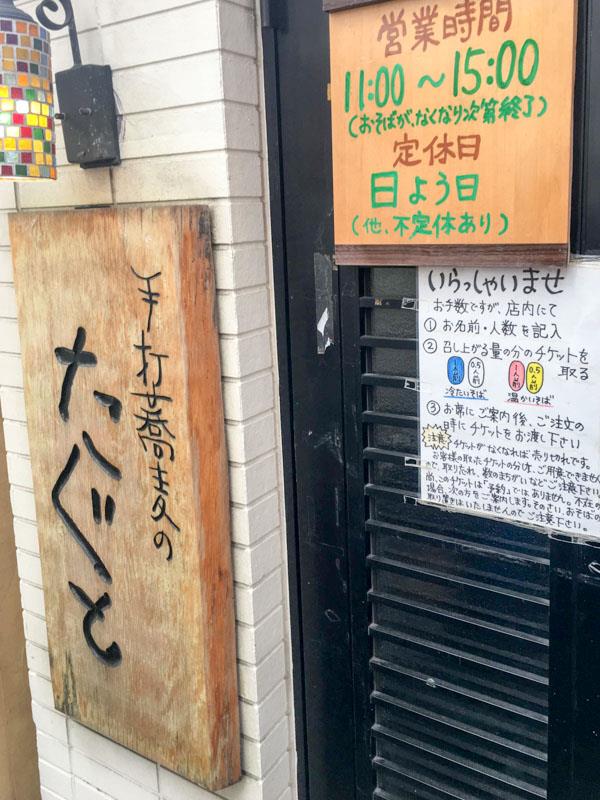 営業時間
11:00～15:00
(おそばがなくなり次第終了)
定休日
日よう日
(他、不定休あり)
手打蕎麦の
たぐと
いらっしゃいませ
お手数ですが、店内にて
① お名前・人数を記入
② 召し上がる量の分のチケットを
取る
1人前
0.5人前
1人前
0.5人前
冷たいそば
温かいそば
③ お席にご案内後、ご注文の
時にチケットをお渡し下さい
注意
チケットがなくなれば売り切れです。
お客様の取ったチケットの分は、ご用意できません
ので、取りたれ、数のまちがいなどご注意下さい
尚、このチケットは「予約」ではありません。不在の
場合、次の方をご案内します。そのさい、おそばの
取り置きはいたしませんのでご注意下さい。